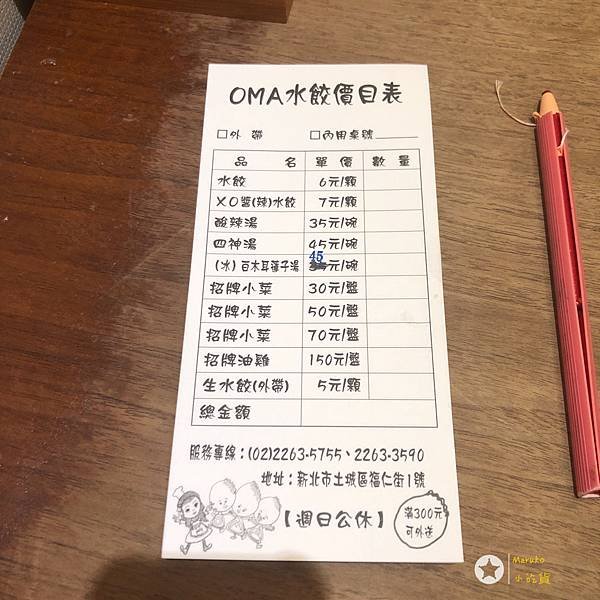 OMA水餃價目表
□外 帶 □內用桌號____
品 名 單 價 數 量
水餃 6元/顆
XO醬(辣)水餃 7元/顆
酸辣湯 35元/碗
四神湯 45元/碗
(冰)白木耳蓮子湯 45元/碗
招牌小菜 30元/盤
招牌小菜 50元/盤
招牌小菜 70元/盤
招牌油雞 150元/盤
生水餃(外帶) 5元/顆
總金額
服務專線:(02)2263-5755、2263-3590
地址:新北市土城區福仁街1號
【週日公休】
滿300元
可外送
Maruko
小吃貨